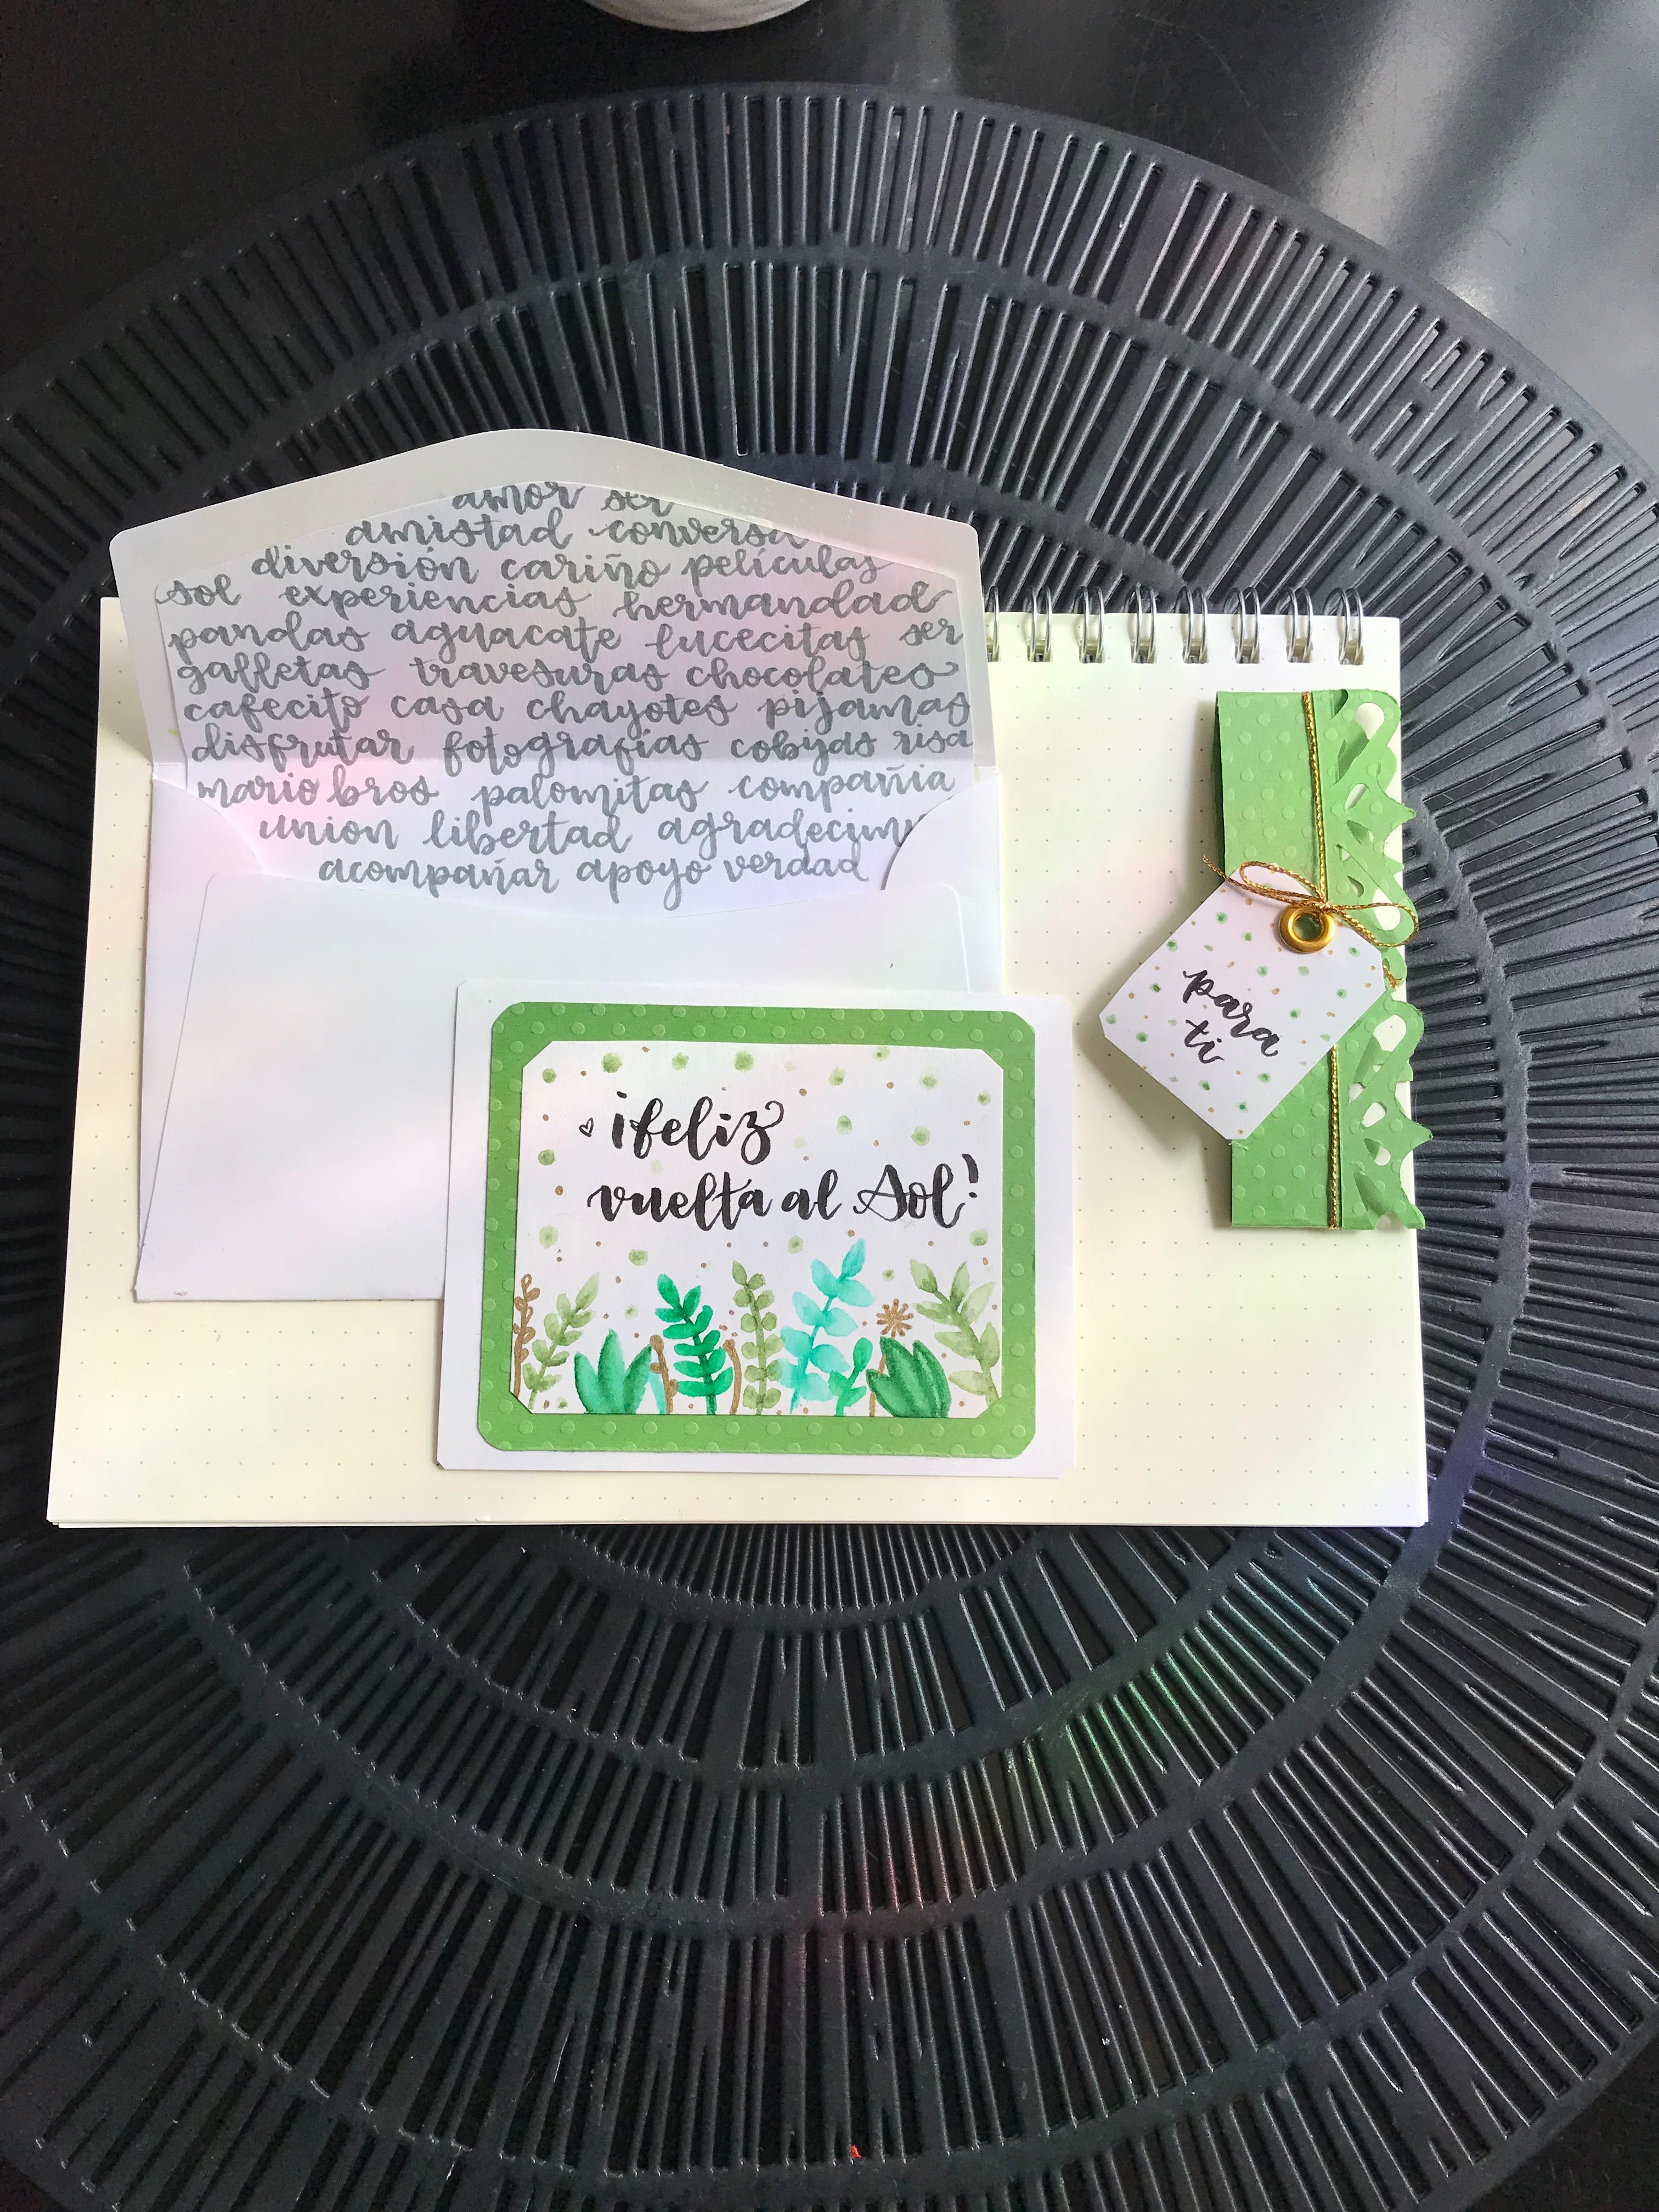 amor ser
amistad conversa
diversión cariño películas
sol experiencias hermandad
pandas aguacate lucecitas ser
galletas travesuras chocolates
cafecito casa chayotes pijamas
disfrutar fotografías cobijas risa
mario bros palomitas compañia
union libertad agradecim
acompañar apoyo verdad
¡feliz
vuelta al Sol!
para
ti